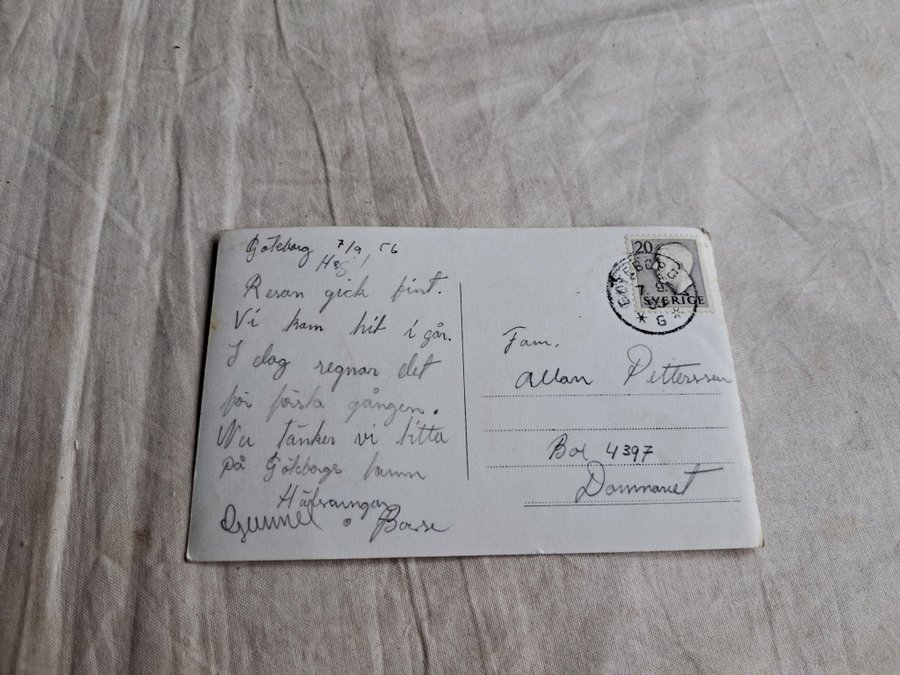 Göteborg 7/9 56
Hej!
Resan gick fint.
Vi kom hit i går.
I dag regnar det
för första gången.
Nu tänker vi titta
på Göteborgs hamn
Hälsningar
Gunnel o Bosse
20
SVERIGE
GÖTEBORG
7.9.
* G *
Fam.
Allan Pettersson
Box 4397
Domnarvet